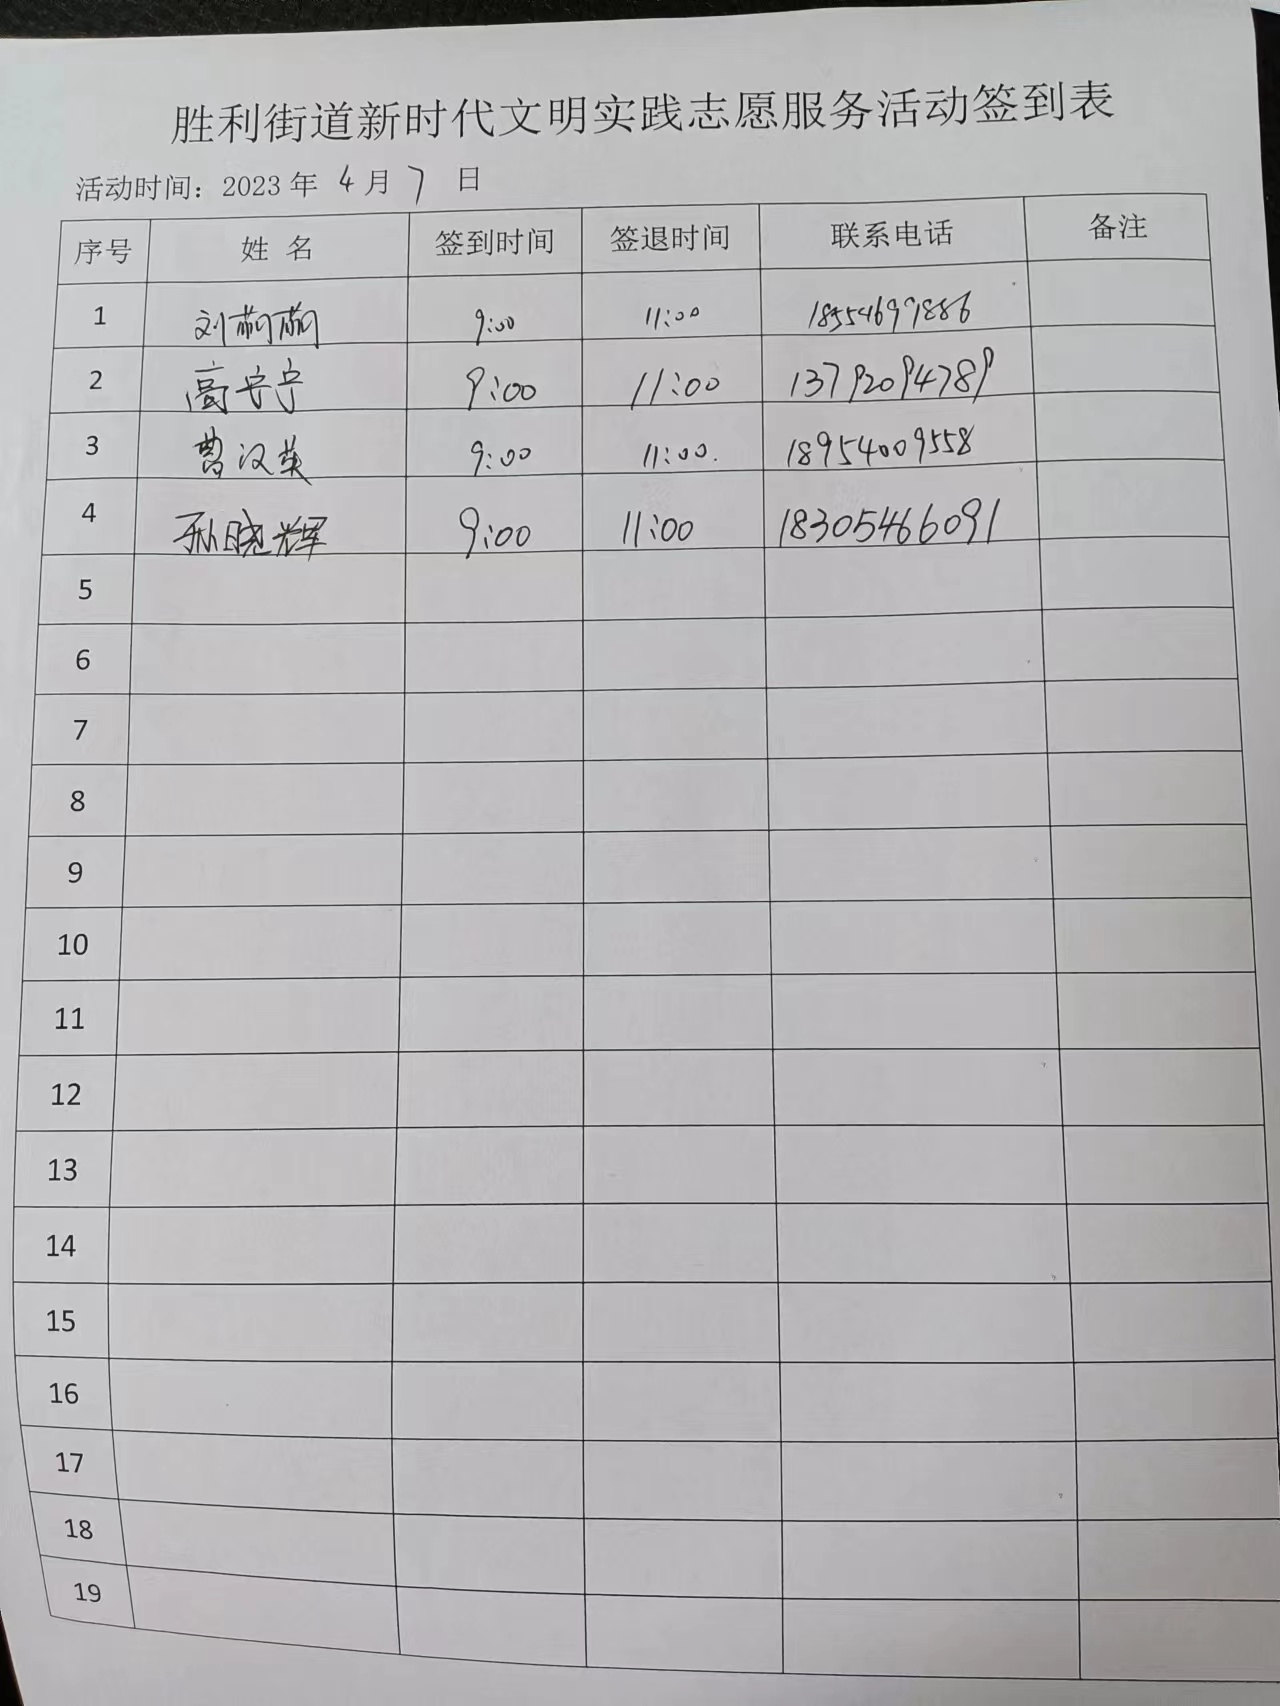 胜利街道新时代文明实践志愿服务活动签到表
活动时间：2023 年 4 月 7 日
序号 姓 名 签到时间 签退时间 联系电话 备注
1 刘 9:00 11:00 18554699886
2 高宁宁 9:00 11:00 13792094789
3 曹汉英 9:00 11:00. 18954009558
4 孙晓辉 9:00 11:00 18305466091
5
6
7
8
9
10
11
12
13
14
15
16
17
18
19